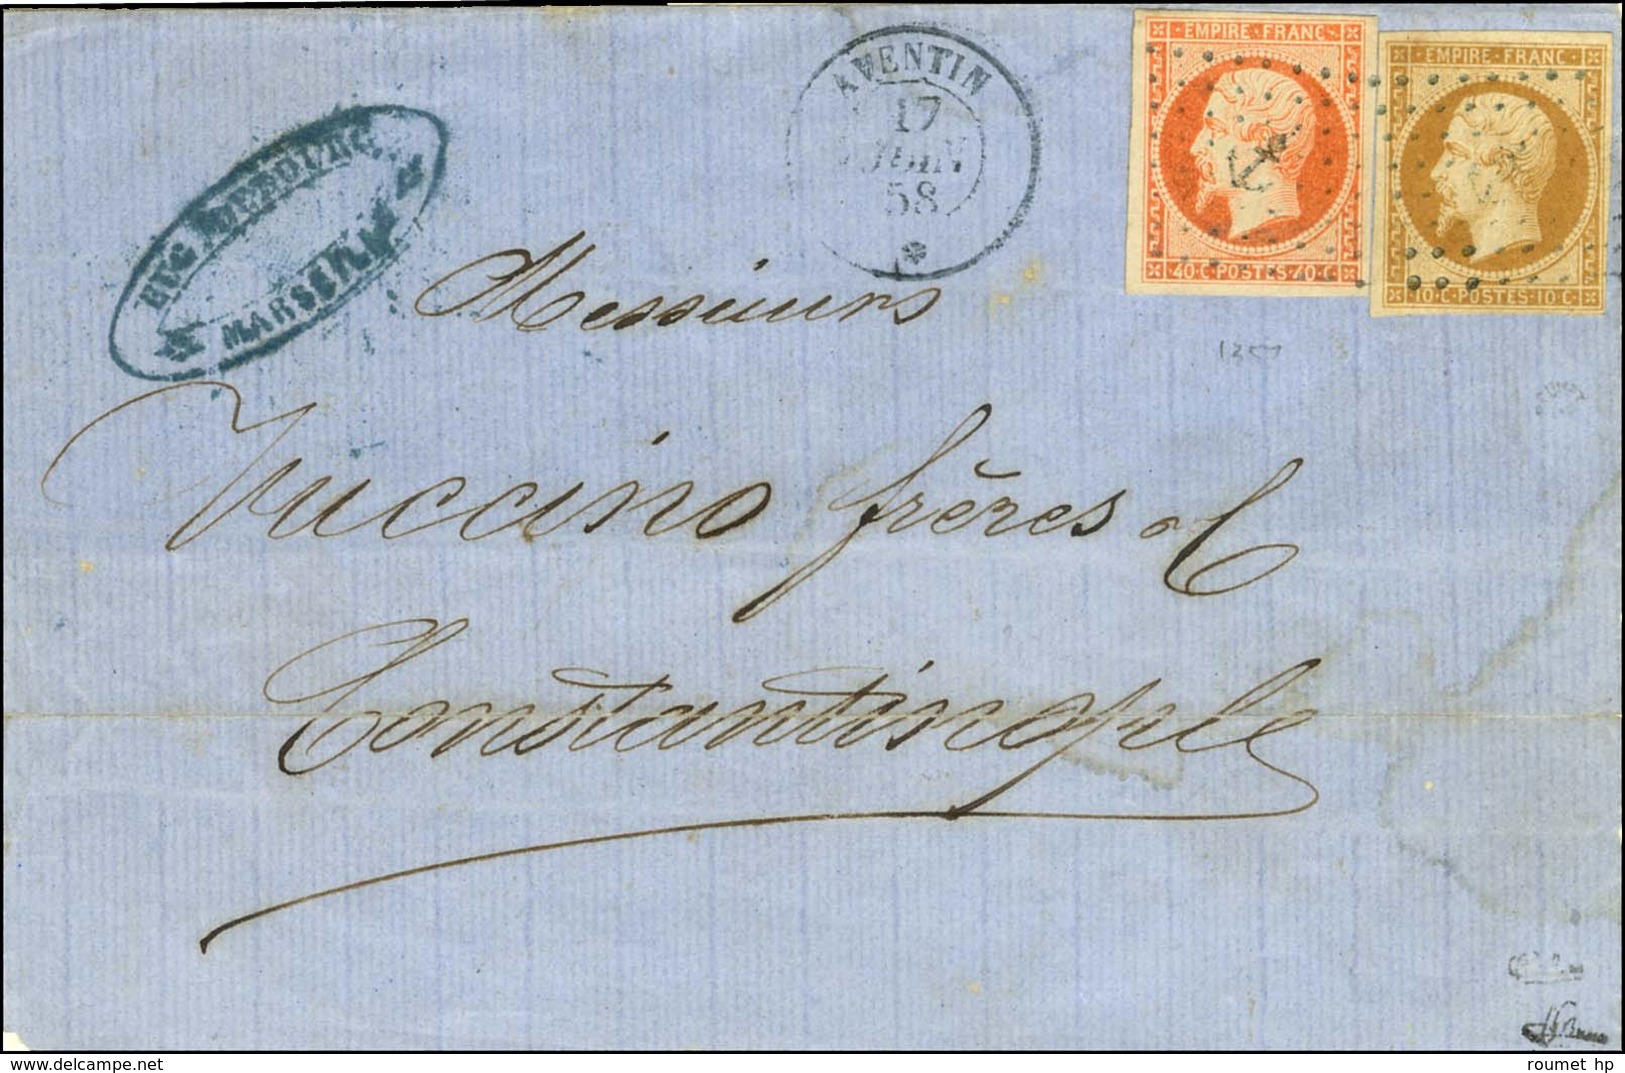 AVENTIN
17
JUIN
58
EMPIRE · FRANC
40 · C · POSTES · 40 · C
EMPIRE · FRANC
10 · C · POSTES · 10 · C
MARSEILLE
Messieurs
Vuccino frères & C
Constantinople
roumet hp